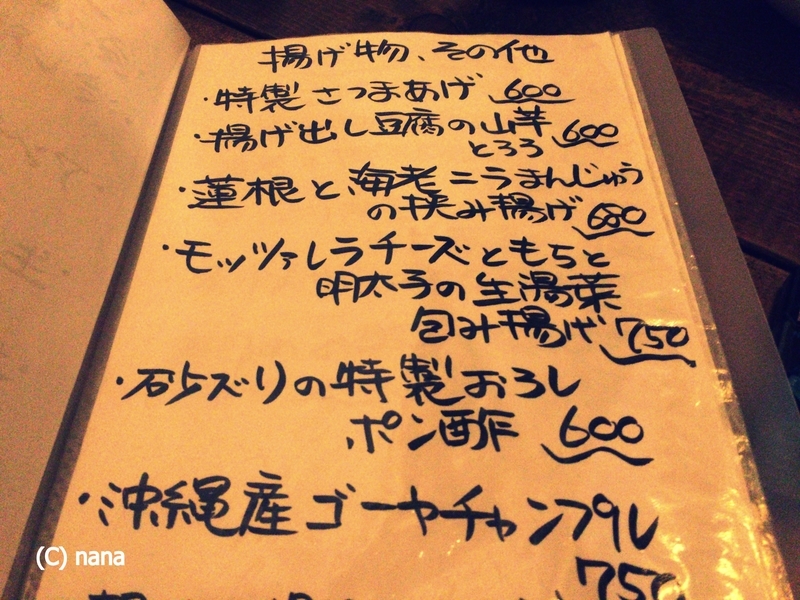 揚げ物、その他
・特製さつまあげ 600
・揚げ出し豆腐の山芋
とろろ 600
・蓮根と海老ニラまんじゅう
の挟み揚げ 680
・モッツァレラチーズともちと
明太子の生湯葉
包み揚げ 750
・砂ズリの特製おろし
ポン酢 600
・沖縄産ゴーヤチャンプル
750
(C) nana